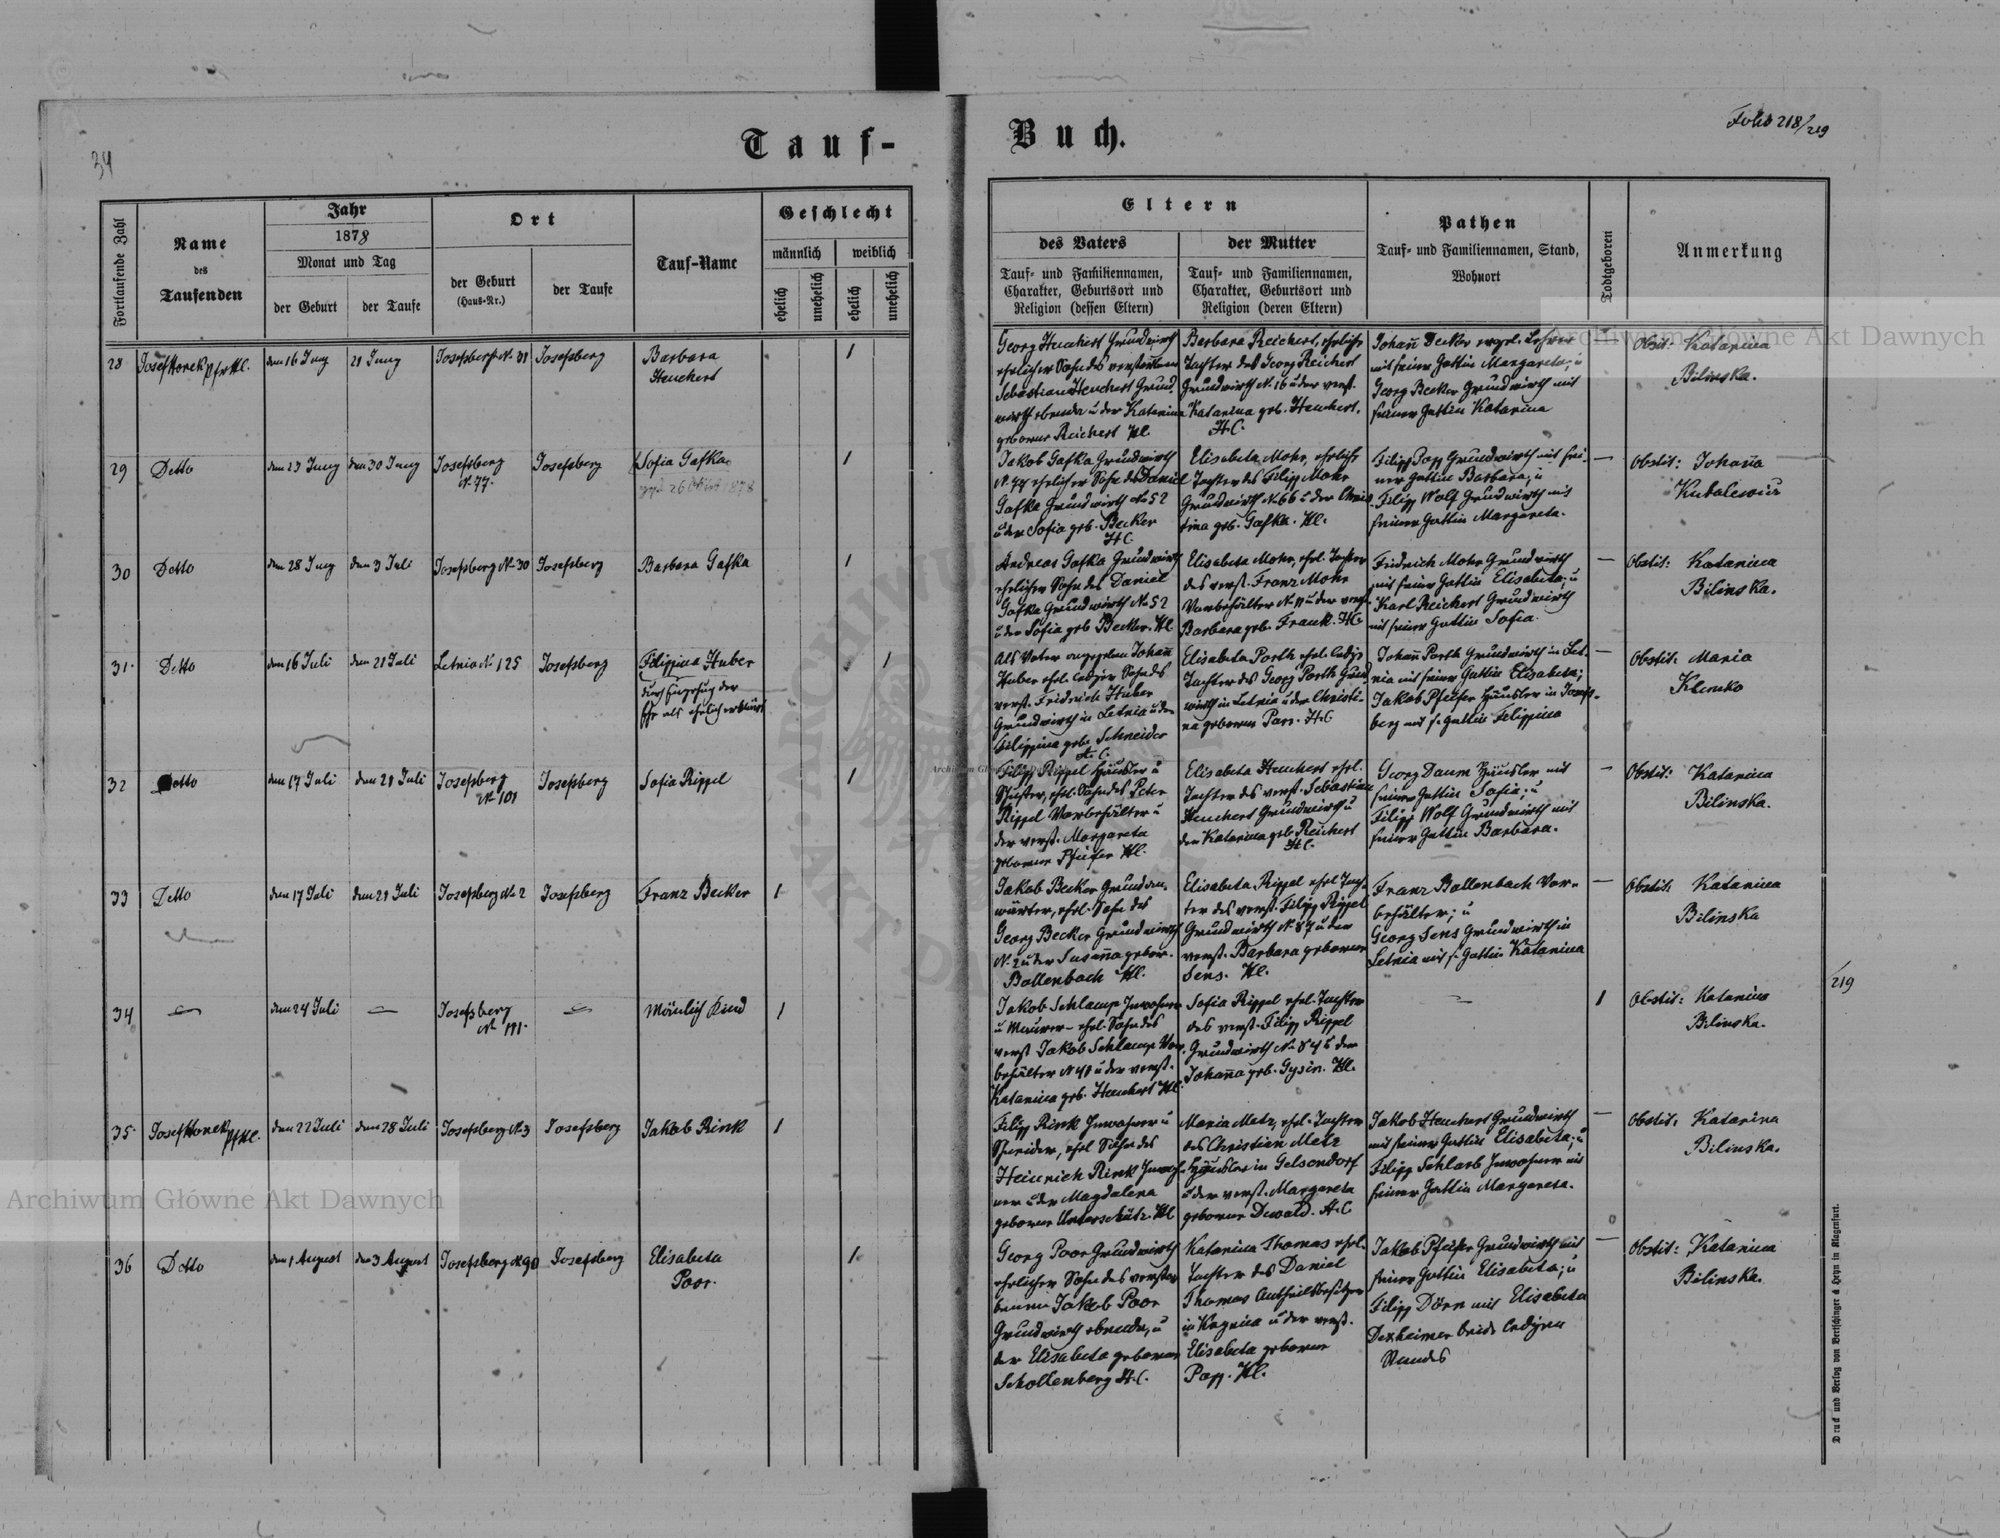 Folio 218/219
34
Tauf-
Buch.
Fortlaufende Zahl
Name
des
Taufenden
Jahr
1878
Monat und Tag
der Geburt
der Taufe
Ort
der Geburt
(Haus-Nr.)
der Taufe
Tauf-Name
Geschlecht
männlich
weiblich
ehelich
unehelich
ehelich
unehelich
Eltern
des Vaters
Tauf- und Familiennamen,
Charakter, Geburtsort und
Religion (dessen Eltern)
der Mutter
Tauf- und Familiennamen,
Charakter, Geburtsort und
Religion (deren Eltern)
Pathen
Tauf- und Familiennamen, Stand,
Wohnort
Todtgeboren
Anmerkung
28
Josef Horek
den 16 Juny
21 Juny
Josefsberg N. 31
Josefsberg
Barbara
Heuchert
1
Georg Heuchert Grundwirth
ehelicher Sohn des verstorbenen
Sebastian Heuchert Grund-
wirth ebenda u der Katarina
geborne Reichert HC
Barbara Reichert, eheliche
Tochter des Georg Reichert
Grundwirth N. 16 u der verst.
Katarina geb. Heuchert.
H.C.
Johann Decker evgel. Lehrer
mit seiner Gattin Margareta; u
Georg Becker Grundwirth mit
seiner Gattin Katarina
—
Obstit: Katarina
Bilinska.
29
Detto
den 23 Juny
den 30 Juny
Josefsberg
N. 77.
Josefsberg
Sofia Gafka
1
Jakob Gafka Grundwirth
N. 77 ehelicher Sohn des Daniel
Gafka Grundwirth No 52
u der Sofia geb. Becker
H.C.
Elisabeta Mohr, eheliche
Tochter des Filipp Mohr
Grundwirth N. 66 u der Chris
tina geb. Gafka. HC.
Filipp Popp Grundwirth mit sei-
ner Gattin Barbara; u
Filipp Wolf Grundwirth mit
seiner Gattin Margareta.
—
Obstit: Johanna
Kubalewicz
30
Detto
den 28 Juny
den 3 Juli
Josefsberg N. 30
Josefsberg
Barbara Gafka
1
Andreas Gafka Grundwirth
ehelicher Sohn des Daniel
Gafka Grundwirth No 52
u der Sofia geb Becker. HC
Elisabeta Mohr, ehel. Tochter
des verst. Franz Mohr
Vorbehälter N. 11 u der verst.
Barbara geb. Frank. HC
Fridrich Mohr Grundwirth
mit seiner Gattin Elisabeta; u
Karl Reichert Grundwirth
mit seiner Gattin Sofia.
—
Obstit: Katarina
Bilinska.
31.
Detto
den 16 Juli
den 21 Juli
Letnia N. 125
Josefsberg
Filippina Huber
1
Als Vater angegeben Johann
Huber ehel. lediger Sohn des
verst. Friderich Huber
Grundwirth in Letnia u der
Filippina geb. Schneider
H.C.
Elisabeta Porth ehel. ledige
Tochter des Georg Porth Grund
wirth in Letnia u der Christi-
na geborne Parr. H.C
Johann Porth Grundwirth in Let-
nia mit seiner Gattin Elisabeta;
Jakob Pfeifer Häusler in Josefs-
berg mit s. Gattin Filippina
—
Obstit: Maria
Klemko
32
Detto
den 17 Juli
den 21 Juli
Josefsberg
N. 101
Josefsberg
Sofia Rippel
1
Filipp Rippel Häusler u
Schuster, ehel. Sohn des Peter
Rippel Vorbehälter u
der verst. Margareta
geborne Pfeifer HC.
Elisabeta Heuchert ehel.
Tochter des verst. Sebastian
Heuchert Grundwirth u
der Katarina geb Reichert
H.C.
Georg Daum Häusler mit
seiner Gattin Sofia; u
Filipp Wolf Grundwirth mit
seiner Gattin Barbara.
—
Obstit: Katarina
Bilinska.
33
Detto
den 17 Juli
den 21 Juli
Josefsberg N. 2
Josefsberg
Franz Becker
1
Jakob Becker Grundan-
wärter, ehel. Sohn des
Georg Becker Grundwirth
N. 2 u der Susanna gebor.
Bollenbach HC.
Elisabeta Rippel ehel Toch-
ter des verst. Filipp Rippel
Grundwirth N. 84 u der
verst. Barbara geborne
Sens. HC.
Franz Bollenbach Vor-
behälter; u
Georg Sens Grundwirth in
Letnia mit s. Gattin Katarina
—
Obstit: Katarina
Bilinska
/219
34
den 24 Juli
—
Josefsberg
N. 111.
Mänlich Kind
1
Jakob Schlamp Inwohner
u Maurer - ehel. Sohn des
verst Jakob Schlamp Vor-
behälter N 41 u der verst.
Katarina geb. Heuchert HC.
Sofia Rippel ehel. Tochter
des verst. Filipp Rippel
Grundwirth N. 84 u der
Johanna geb. Gysin. HC.
1
Obstit: Katarina
Bilinska.
35.
Josef Horek
den 22 Juli
den 28 Juli
Josefsberg N. 3
Josefsberg
Jakob Rink
1
Filipp Rink Inwohner u
Schneider, ehel Sohn des
Heinrich Rink Inwoh-
ner u der Magdalena
geborne Unterschütz. HC
Maria Metz, ehel. Tochter
des Christian Metz
Häusler in Gelsendorf
u der verst. Margareta
geborne Dewald. H.C
Jakob Heuchert Grundwirth
mit seiner Gattin Elisabeta; u
Filipp Schlarb Inwohner mit
seiner Gattin Margareta.
—
Obstit: Katarina
Bilinska.
36
Detto
den 1 August
den 3 August
Josefsberg N. 90
Josefsberg
Elisabeta
Poor.
1
Georg Poor Grundwirth
ehelicher Sohn des verstor
benen Jakob Poor
Grundwirth ebenda, u
der Elisabeta geborne
Schollenberg H.C.
Katarina Thomas ehel.
Tochter des Daniel
Thomas Antheilsbesitzer
in u der verst.
Elisabeta geborne
Popp. HC.
Jakob Pfeifer Grundwirth mit
seiner Gattin Elisabeta; u
Filipp Dörn mit Elisabeta
Dexheimer beide ledigen
Standes
—
Obstit: Katarina
Bilinska.
Druck und Verlag von Bertschinger & Heyn in Klagenfurt.
Archiwum Główne Akt Dawnych
Archiwum Główne Akt Dawnych